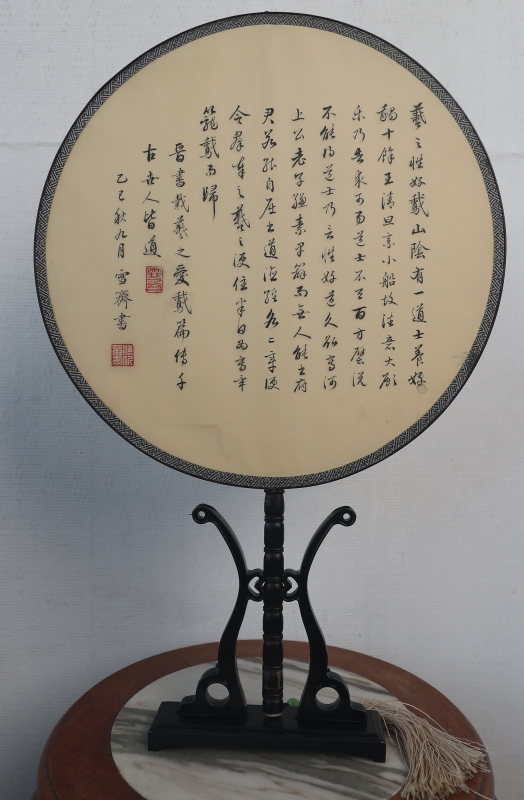 羲之性好鵞山陰有一道士養好
鵞十餘王清旦乘小船故往意大願
乐乃告求市易道士不与百方譬说
不能得道士乃言性好道久欲寫河
上公老子縑素早辦而無人能書府
君若能自屈書道德經各二章便
合群奉之羲之便住半日為寫畢
籠鵞而歸
晉書載羲之愛鵞篇傳于
古世人皆道
乙巳秋九月雪齋書